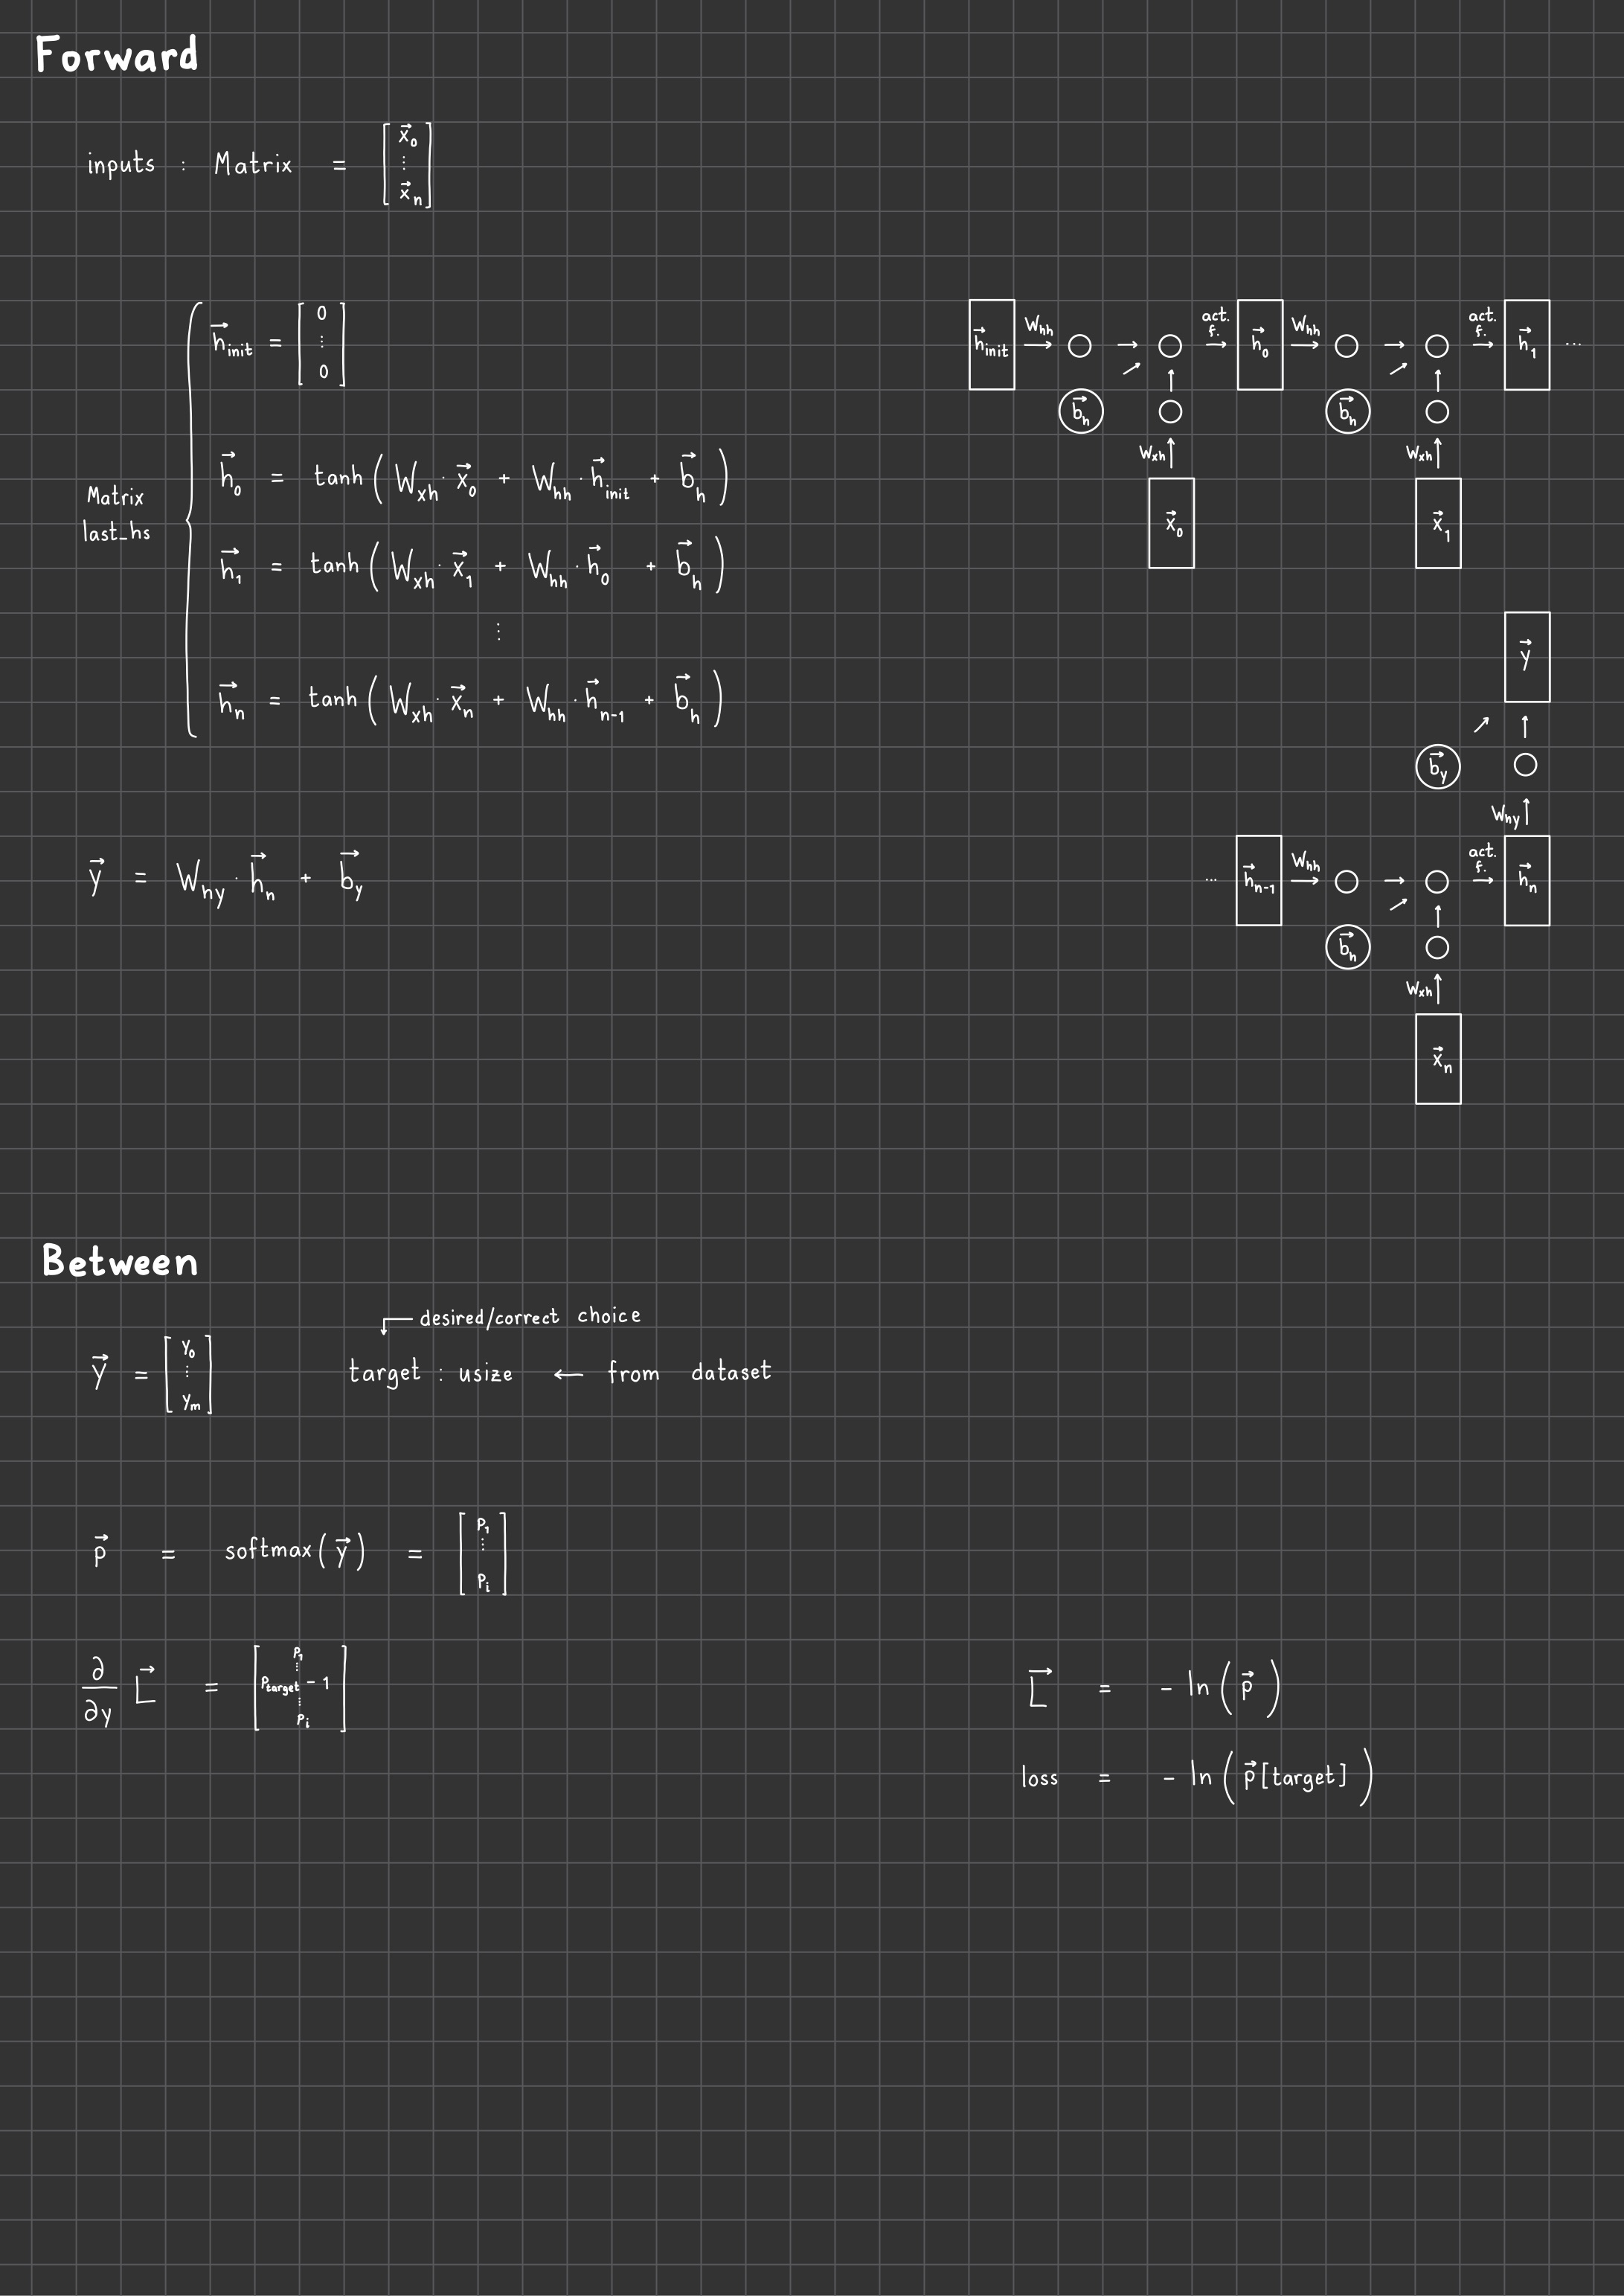 Forward
inputs : Matrix = [ x⃗₀ ⋮ x⃗ₙ ]
Matrix last_hs
h⃗_init = [ 0 ⋮ 0 ]
h⃗₀ = tanh( W_xh · x⃗₀ + W_hh · h⃗_init + b⃗_h )
h⃗₁ = tanh( W_xh · x⃗₁ + W_hh · h⃗₀ + b⃗_h )
⋮
h⃗ₙ = tanh( W_xh · x⃗ₙ + W_hh · h⃗ₙ₋₁ + b⃗_h )
y⃗ = W_hy · h⃗ₙ + b⃗_y
h⃗_init W_hh → ○ → ○ act. f. → h⃗₀ W_hh → ○ → ○ act. f. → h⃗₁ ...
b⃗_h ○ b⃗_h ○
W_xh ↑ W_xh ↑
x⃗₀ x⃗₁
y⃗
b⃗_y ○
W_hy ↑
... h⃗ₙ₋₁ W_hh → ○ → ○ act. f. → h⃗ₙ
b⃗_h ○
W_xh ↑
x⃗ₙ
Between
desired/correct choice
y⃗ = [ y₀ ⋮ yₘ ]
target : usize ← from dataset
p⃗ = softmax( y⃗ ) = [ p₁ ⋮ pᵢ ]
∂/∂y L⃗ = [ p₁ ⋮ p_target - 1 ⋮ pᵢ ]
L⃗ = - ln( p⃗ )
loss = - ln( p⃗[target] )